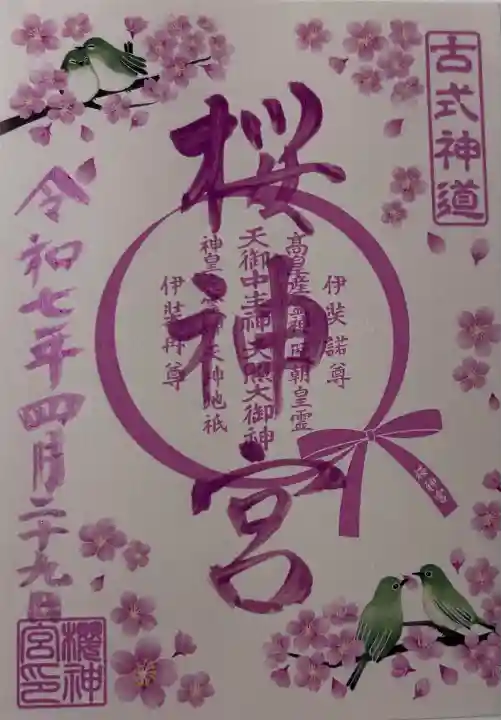 古式神道
桜神宮
伊弉諾尊
高皇産霊神歴朝皇霊
天御中主神天照大御神
神皇産霊神天神地祇
伊弉冉尊
桜神宮
令和七年四月二十九日
櫻神宮印